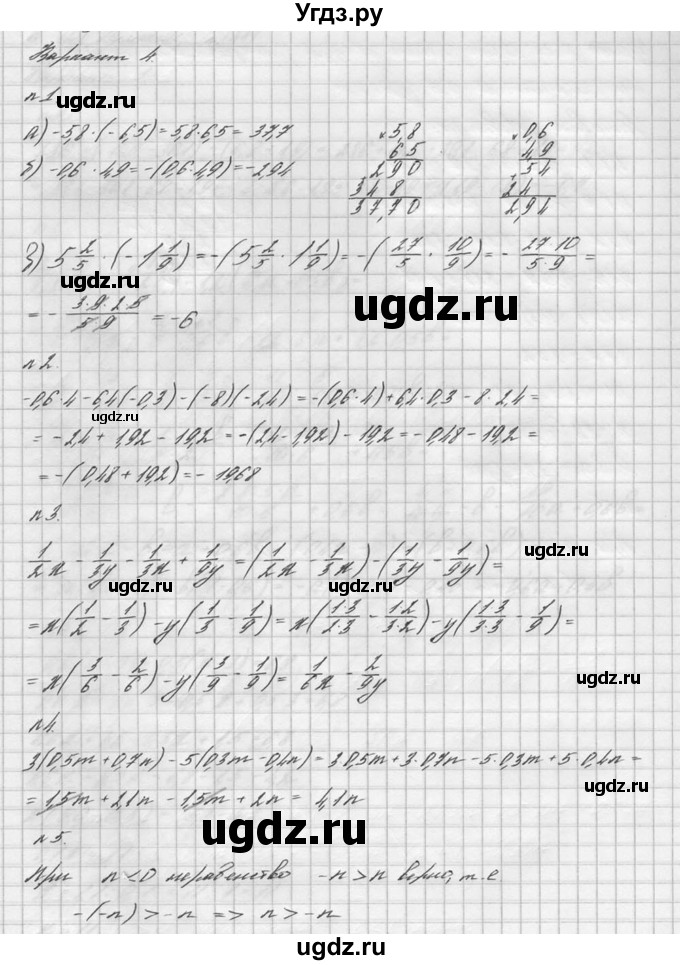 Угдз.ру
Вариант 4.
n 1
ugdz.ru
а) -5,8·(-6,5)=5,8·6,5=37,7
б) -0,6·4,9=-(0,6·4,9)=-2,94
×5,8
65
+290
348
37,70
×0,6
4,9
+54
24
2,94
в) 5 2/5·(-1 1/9)=-(5 2/5·1 1/9)=-(27/5·10/9)=-27·10/5·9=
ugdz.ru
ugdz.ru
=-3·9·2·5/5·9=-6
ugdz.ru
n 2.
-0,6·4-6,4(-0,3)-(-8)(-2,4)=-(0,6·4)+6,4·0,3-8·2,4=
ugdz.ru
=-2,4+1,92-19,2=-(2,4-1,92)-19,2=-0,48-19,2=
=-(0,48+19,2)=-19,68
n 3.
1/2x-1/3y-1/3x+1/9y=(1/2x-1/3x)-(1/3y-1/9y)=
ugdz.ru
ugdz.ru
ugdz.ru
=x(1/2-1/3)-y(1/3-1/9)=x(1·3/2·3-1·2/3·2)-y(1·3/3·3-1/9)=
=x(3/6-2/6)-y(3/9-1/9)=1/6x-2/9y
ugdz.ru
n 4.
3(0,5m+0,7n)-5(0,3m-0,4n)=3·0,5m+3·0,7n-5·0,3m+5·0,4n=
ugdz.ru
=1,5m+2,1n-1,5m+2n=4,1n
ugdz.ru
n 5.
При n<0 неравенство -n>n верно, т.е
-(-n)>-n => n>-n
ugdz.ru